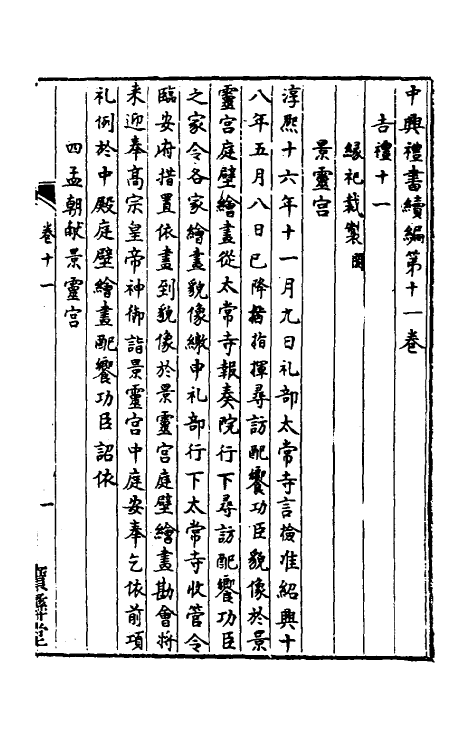 中興禮書續編第十一卷
吉禮十一
緣祀裁製 闕
景靈宮
淳熙十六年十一月九日礼部太常寺言檢准紹興十
八年五月八日已降指揮尋訪配饗功臣貌像於景
靈宮庭壁繪畫從太常寺報奏院行下尋訪配饗功臣
之家令各家繪畫貌像繳申礼部行下太常寺收管令
臨安府措置依畫到貌像於景靈宮庭壁繪畫勘會將
来迎奉髙宗皇帝神御詣景靈宮中庭安奉乞依前項
礼例於中殿庭壁繪畫配饗功臣 詔依
四孟朝献景靈宮
卷十一
一